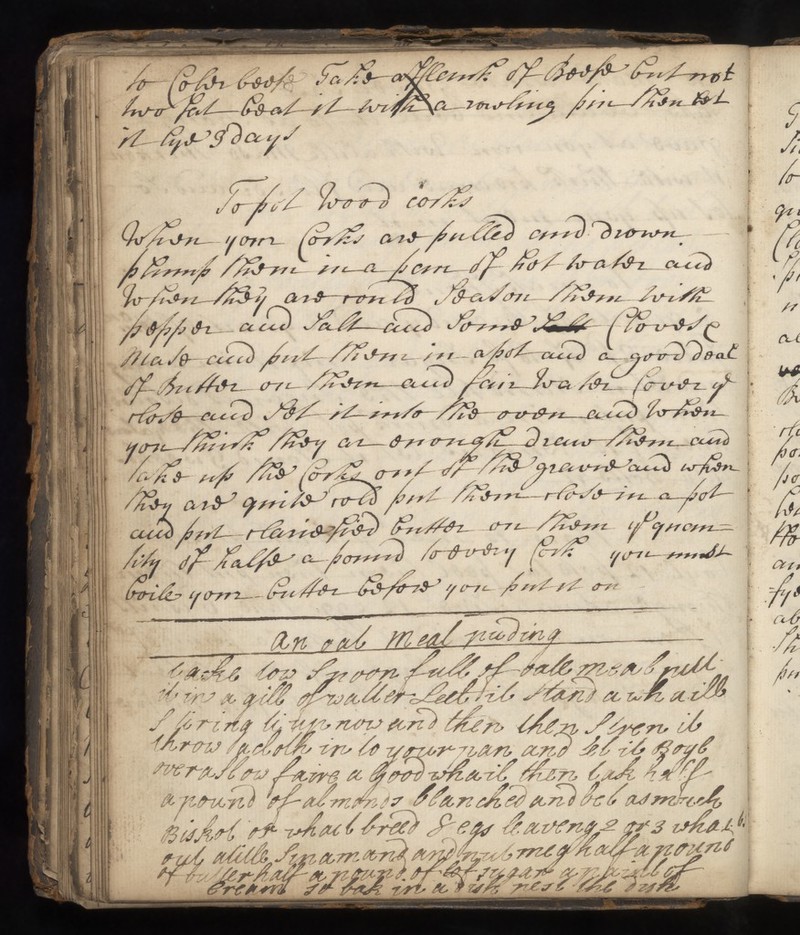 to Coler beefe Take a flank of Beefe but not
two fat beat it with a rowling pin then let
it lye 9 days
To pot Wood corks
When your Corks are pulled and drown
plump them in a pan of hot water and
when they are could Season them with
pepper and Salt and Some Salt Cloves &
Mase and put them in a pot and a good deal
of Butter on them and fair water Cover yt
close and Set it into the oven and when
you think they ar enough draw them and
take up the Corks out of the gravie and when
they are quite cold put them close in a pot
and put clariefied butter on them ye quan=
tity of halfe a pound to every Cork you must
boile your butter before you put it on
An oat Meal puding
take tow Spoon full of oate meal putt
it in a gill of watter Leet it stand a whaill
Stiring it up now and then then Siven it
throw a cloth in to your pan and let it Boyle
over a Slow faire a Good whail then take half
a pound of almonds blanched and bet as much
Biskot or whait bred 8 egs leaveng 2 or 3 whait
out a litle Sinamand and nutmeg half a pound
of butter half a pound of lof sugar a paint of
Cream so bak in a dish rest the dish